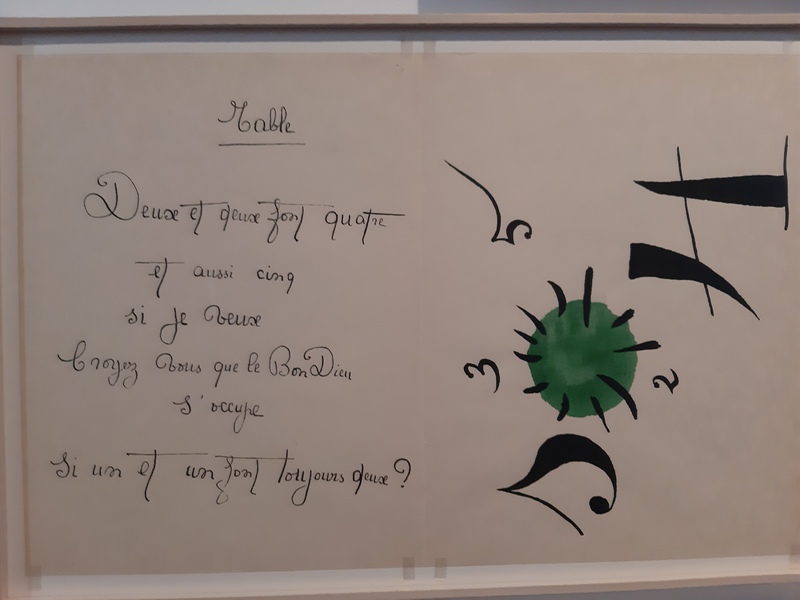 Table
Deux et deux font quatre
et aussi cinq
si je veux
Croyez vous que le Bon Dieu
s'occupe
si un et un font toujours deux?
5
3
2